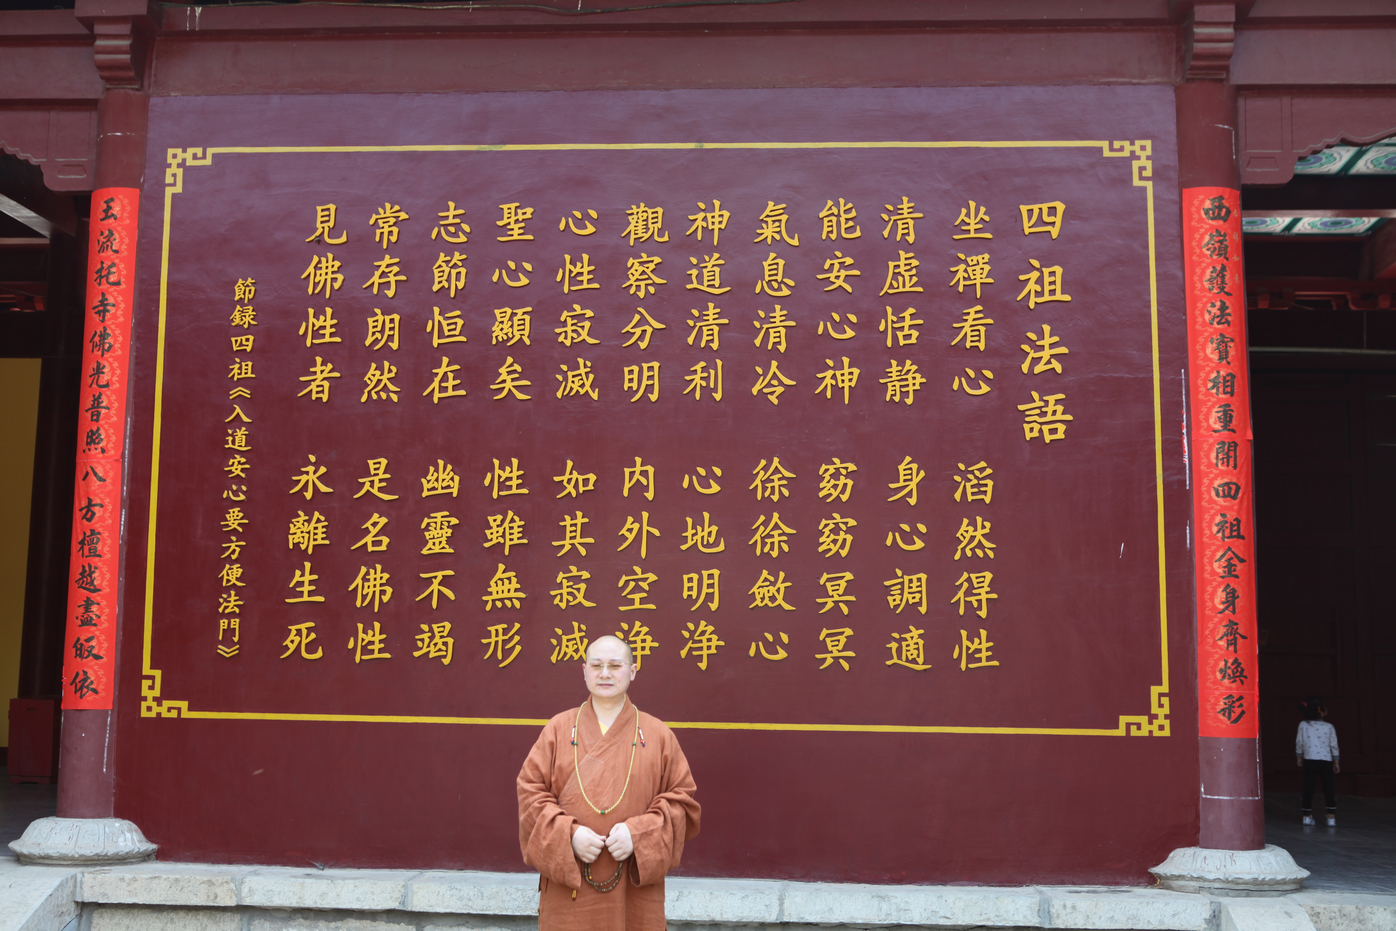 四祖法語
坐禪看心 滔然得性
清虚恬静 身心調適
能安心神 窈窈冥冥
氣息清冷 徐徐斂心
神道清利 心地明浄
觀察分明 内外空浄
心性寂滅 如其寂滅
聖心顯矣 性雖無形
志節恒在 幽靈不竭
常存朗然 是名佛性
見佛性者 永離生死
節録四祖《入道安心要方便法門》
西嶺護法寶相重開四祖金身齊焕彩
玉流托寺佛光普照八方檀越盡皈依